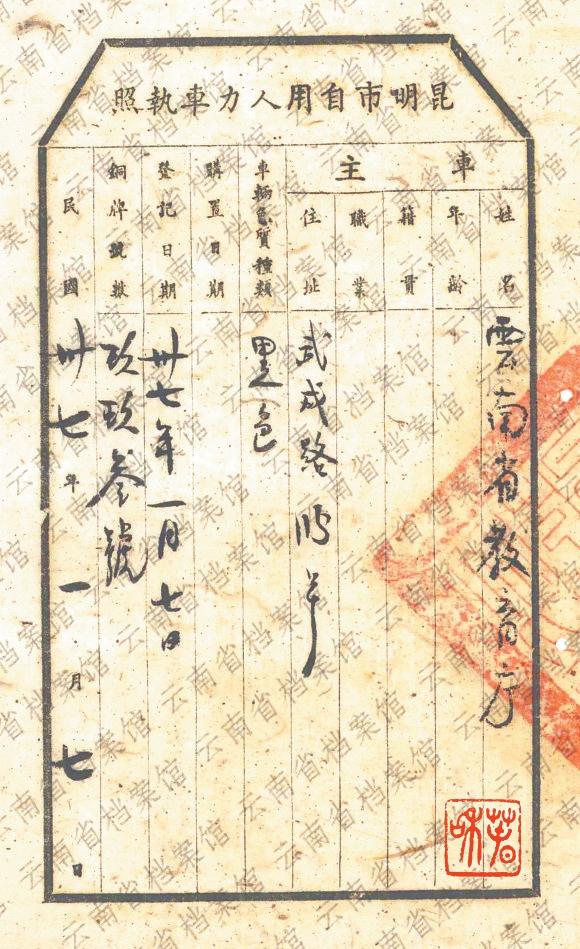 昆明市自用人力車執照
車主
姓名 雲南省教育厅
年齡
籍貫
職業
住址 武成路
車輛意質種類 黑色
購置日期
登記日期 卅七年一月七日
銅牌號數 玖玖叁號
民國卅七年一月七日
云南省档案馆